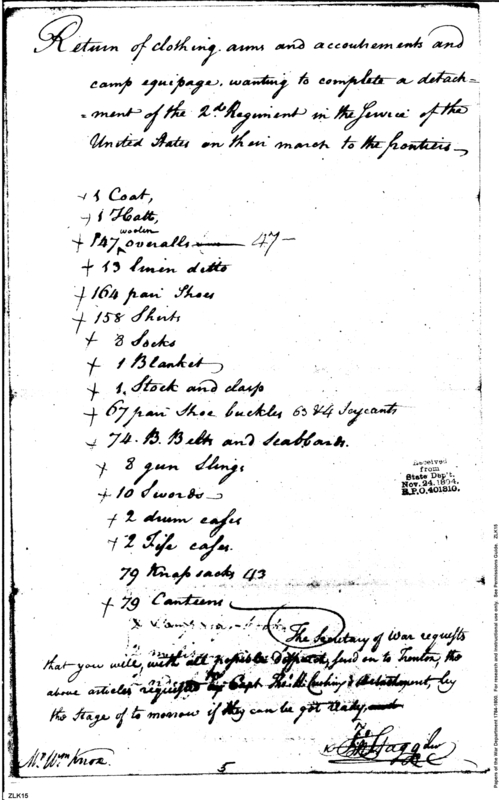 Return of clothing arms and accoutrements and
camp equipage. wanting to complete a detach=
=ment of the 2d Regiment in the Service of the
United States on their march to the frontiers
+ 1 Coat,
+ 1 Hatt,
woolen
+ 147 overalls 47
+ 13 linen ditto
+ 164 pair Shoes
+ 158 Shirts
+ 8 Socks
+ 1 Blanket
+ 1. Stock and clasp
+ 67 pair Shoe buckles 63 & 4
+ 74. B. Belts and Scabbards.
+ 8 gun Slings
+ 10 Swords
+ 2 drum cases
+ 2 Fife cases.
79 Knapsacks 43
+ 79 Canteens
Received
from
State Dep't.
Nov. 24. 1894.
R.P.O. 401810.
The Secretary of War requests
that you will, with all possible dispatch, send on to Trenton, the
above articles requested by Capt Thos. H. Cushing's detachment, by
the Stage of to morrow if they can be got ready
Jno Stagg Junr
Mr. Wm Knox
5
ZLK15
Papers of the War Department 1784-1800. For research and instructional use only. See Permissions Guide. ZLK15